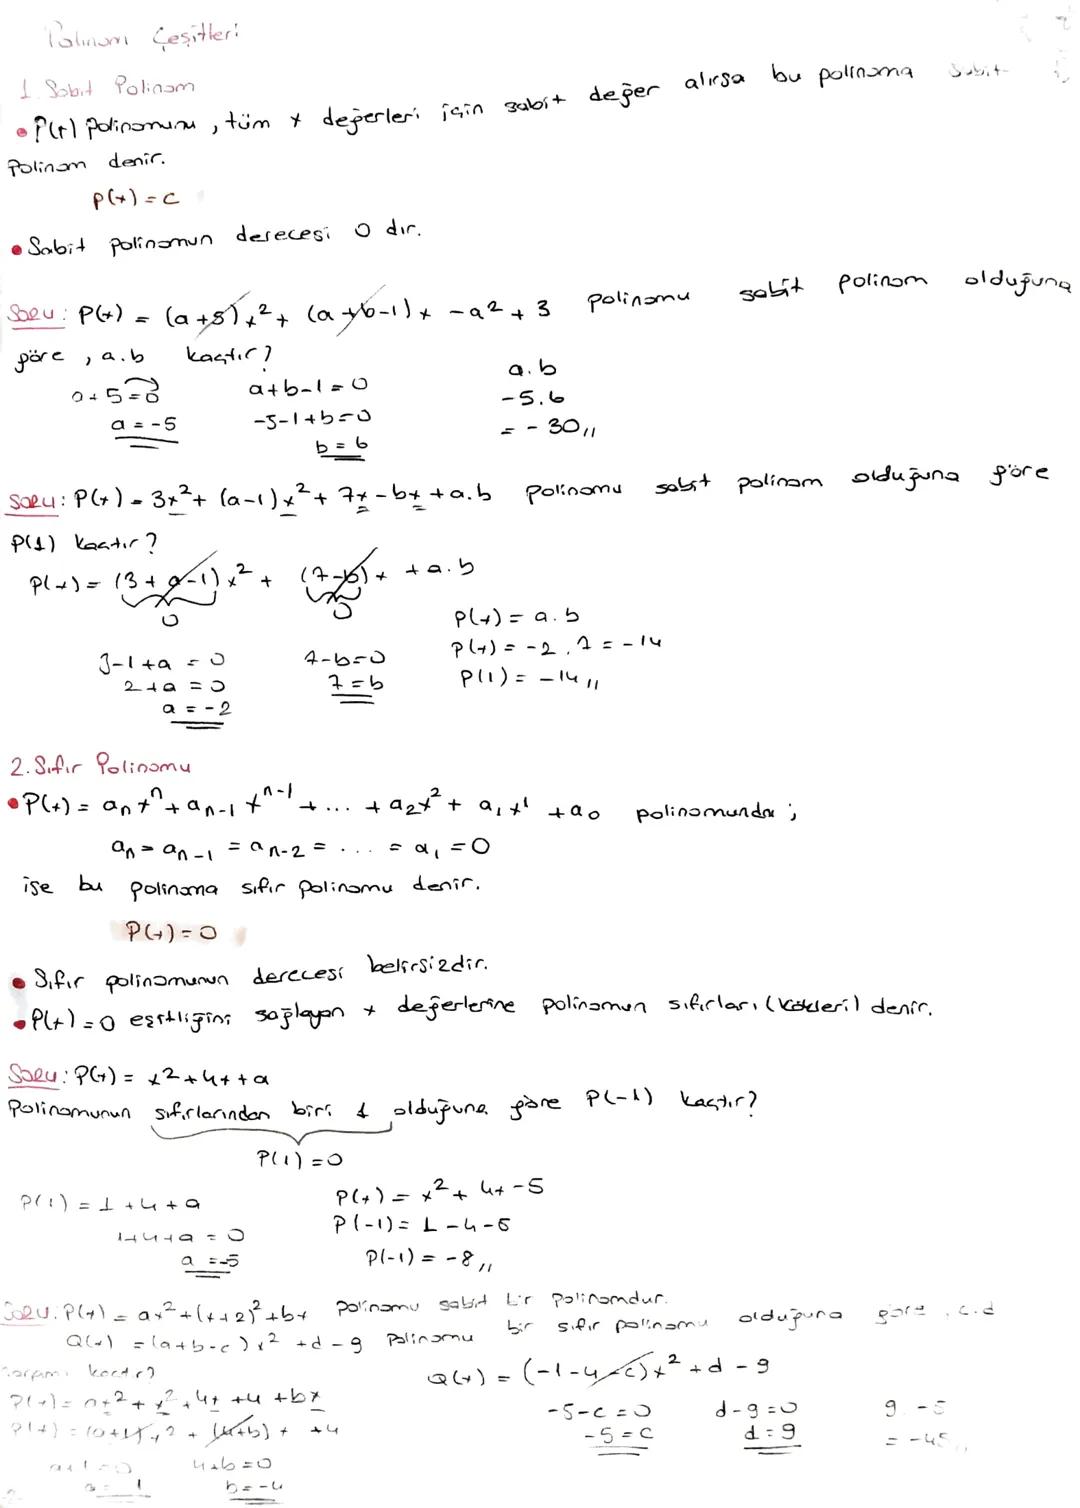 Polinom Çeşitleri
1. Sabit Polinom
• P(x) polinomunu, tüm x değerleri için sabit değer alırsa bu polinoma sabit
Polinom denir.
P(x) = c
• Sabit polinomun derecesi 0 dır.
Soru: P(x) = (a+5)x² + (a+b-1)x - a² + 3 polinomu sabit polinom olduğuna
göre, a.b kaçtır?
a+5=0 a+b-1=0 a.b
a=-5 -5-1+b=0 -5.6
b=6 = -30//
Soru: P(x) = 3x² + (a-1)x² + 7x - bx + a.b polinomu sabit polinom olduğuna göre
P(1) kaçtır?
P(x) = (3+a-1)x² + (7-b)x + a.b
0 0
P(x) = a.b
3-1+a=0 7-b=0 P(x) = -2.7 = -14
2+a=0 7=b P(1) = -14//
a=-2
2. Sıfır Polinomu
• P(x) = aₙxⁿ + aₙ₋₁xⁿ⁻¹ + ... + a₂x² + a₁x¹ + a₀ polinomunda;
aₙ = aₙ₋₁ = aₙ₋₂ = ... = a₁ = 0
ise bu polinoma sıfır polinomu denir.
P(x) = 0
• Sıfır polinomunun derecesi belirsizdir.
• P(x)=0 eşitliğini sağlayan x değerlerine polinomun sıfırları (kökleri) denir.
Soru: P(x) = x² + 4x + a
Polinomunun sıfırlarından biri 1 olduğuna göre P(-1) kaçtır?
P(1) = 0
P(1) = 1+4+a P(x) = x² + 4x - 5
1+4+a = 0 P(-1) = 1-4-5
a = -5 P(-1) = -8//
Soru: P(x) = ax² + (x+2)² + bx polinomu sabit bir polinomdur.
Q(x) = (a+b-c)x² + d - 9 polinomu bir sıfır polinomu olduğuna göre, c.d
çarpımı kaçtır?
Q(x) = (-1-4-c)x² + d - 9
P(x) = ax² + x² + 4x + 4 + bx -5-c=0 d-9=0 9.-5
P(x) = (a+1)x² + (4+b)x + 4 -5=c d=9 = -45//
a+1=0 4+b=0
a=-1 b=-4